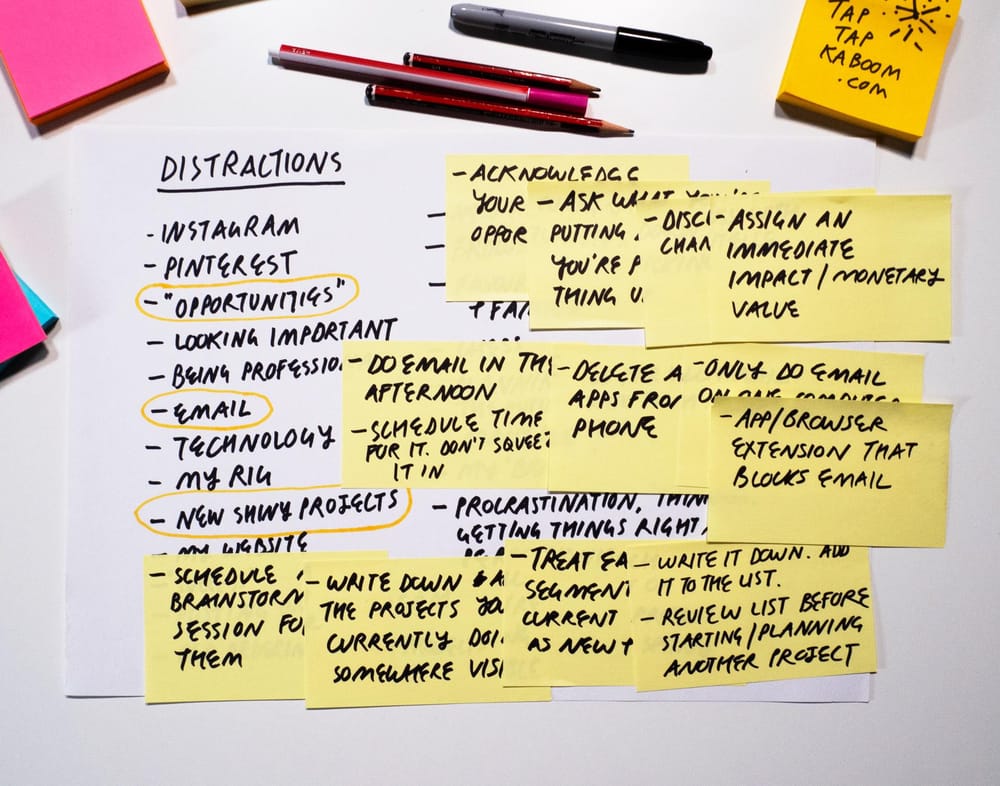 TAP
TAP
KABOOM
.COM
DISTRACTIONS
- INSTAGRAM
- PINTEREST
- "OPPORTUNITIES"
- LOOKING IMPORTANT
- BEING PROFESSIO
- EMAIL
- TECHNOLOGY
- MY RIG
- NEW SHINY PROJECTS
- MY WEBSITE
- ACKNOWLEDGE
YOUR
OPPOR
+ FA
- ASK WHAT YOU'RE
PUTTING
YOU'RE P
THING U
- DISC
CHAN
- ASSIGN AN
IMMEDIATE
IMPACT/MONETARY
VALUE
- DO EMAIL IN TH
AFTERNOON
- SCHEDULE TIME
FOR IT. DON'T SQUEE
IT IN
- DELETE A
APPS FRO
PHONE
- ONLY DO EMAIL
ON ONE COMPUTER
- APP/BROWSER
EXTENSION THAT
BLOCKS EMAIL
- PROCRASTINATION, THIN
GETTING THINGS RIGHT
- SCHEDULE
BRAINSTORM
SESSION FO
THEM
- WRITE DOWN A
THE PROJECTS YO
CURRENTLY DOI
SOMEWHERE VISI
- TREAT EA
SEGMENT
CURRENT
AS NEW +
- WRITE IT DOWN. ADD
IT TO THE LIST.
- REVIEW LIST BEFORE
STARTING/PLANNING
ANOTHER PROJECT